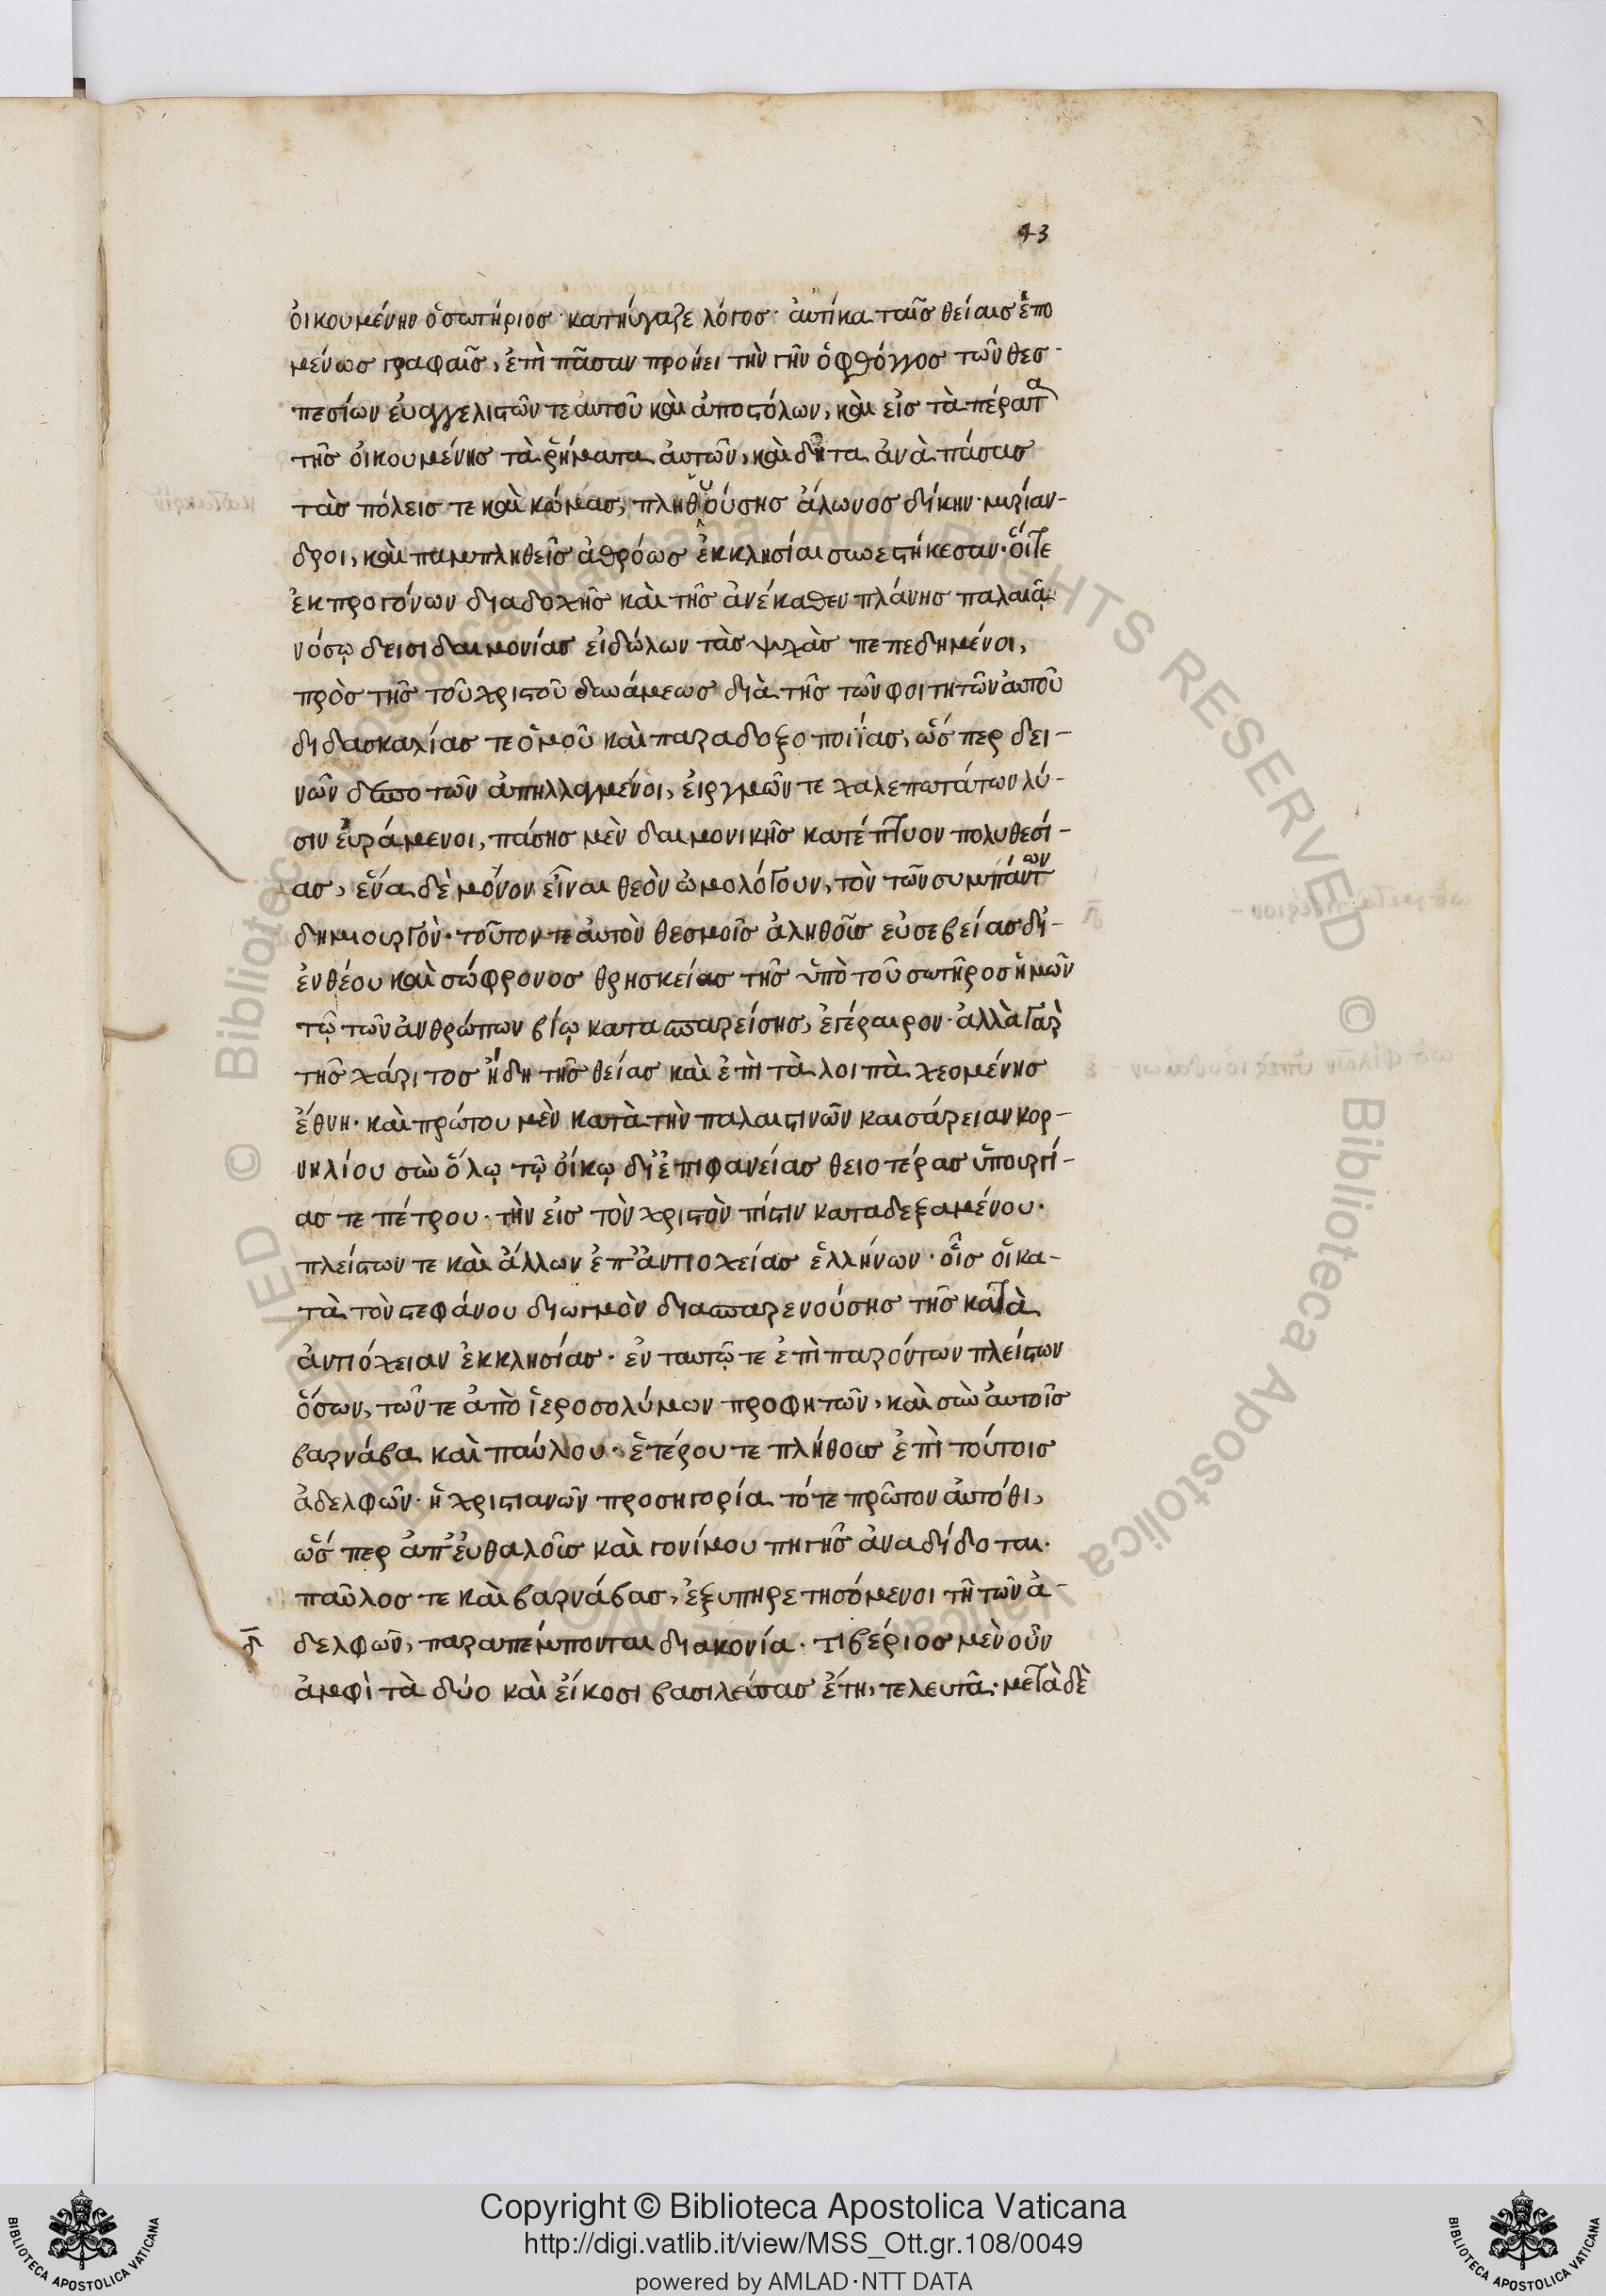 43
οἰκουμένην ὁ σωτήριος κατηύγαζε λόγος· αὐτίκα ταῖς θείαις ἑπο
μένως γραφαῖς, ἐπὶ πᾶσαν προῄει τὴν γῆν ὁ φθόγγος τῶν θεσ-
πεσίων εὐαγγελιστῶν τε αὐτοῦ καὶ ἀποστόλων, καὶ εἰς τὰ πέρατα
τῆς οἰκουμένης τὰ ῥήματα αὐτῶν, καὶ δῆτα ἀνὰ πάσας
τὰς πόλεις τε καὶ κώμας, πληθυούσης ἅλωνος δίκην· μυρίαν-
δροι, καὶ παμπληθεῖς ἀθρόως ἐκκλησίαι συνεστήκεσαν· οἵ τε
ἐκ προγόνων διαδοχῆς καὶ τῆς ἀνέκαθεν πλάνης παλαιᾷ
νόσῳ δεισιδαιμονίας εἰδώλων τὰς ψυχὰς πεπεδημένοι,
πρὸς τῆς τοῦ χριστοῦ δυνάμεως διὰ τῆς τῶν φοιτητῶν αὐτοῦ
διδασκαλίας τε ὁμοῦ καὶ παραδοξοποιΐας, ὥσπερ δει-
νῶν δεσποτῶν ἀπηλλαγμένοι, εἱργμῶν τε χαλεπωτάτων λύ-
σιν εὑράμενοι, πάσης μὲν δαιμονικῆς κατέπτυον πολυθεΐ-
ας, ἕνα δὲ μόνον εἶναι θεὸν ὡμολόγουν, τὸν τῶν συμπάντων
δημιουργόν· τοῦτόν τε αὐτὸν θεσμοῖς ἀληθοῦς εὐσεβείας δι'
ἐνθέου καὶ σώφρονος θρησκείας τῆς ὑπὸ τοῦ σωτῆρος ἡμῶν
τῷ τῶν ἀνθρώπων βίῳ κατασπαρείσης, ἐγέραιρον· ἀλλὰ γὰρ
τῆς χάριτος ἤδη τῆς θείας καὶ ἐπὶ τὰ λοιπὰ χεομένης
ἔθνη· καὶ πρώτου μὲν κατὰ τὴν παλαιστινῶν καισάρειαν κορ-
νηλίου σὺν ὅλῳ τῷ οἴκῳ δι' ἐπιφανείας θειοτέρας ὑπουργί-
ας τε πέτρου· τὴν εἰς τὸν χριστὸν πίστιν καταδεξαμένου·
πλείστων τε καὶ ἄλλων ἐπ' ἀντιοχείας ἑλλήνων· οἷς οἱ κα-
τὰ τὸν στεφάνου διωγμὸν διασπαρενούσης τῆς κατὰ
ἀντιόχειαν ἐκκλησίας· ἐν ταυτῷ τε ἐπὶ παρόντων πλείστων
ὅσων, τῶν τε ἀπὸ ἱεροσολύμων προφητῶν, καὶ σὺν αὐτοῖς
βαρνάβα καὶ παύλου· ἑτέρου τε πλήθους ἐπὶ τούτοις
ἀδελφῶν· ἡ χριστιανῶν προσηγορία τότε πρῶτον αὐτόθι,
ὥσπερ ἀπ' εὐθαλοῦς καὶ γονίμου πηγῆς ἀναδίδοται·
παῦλός τε καὶ βαρνάβας, ἐξυπηρετησόμενοι τῇ τῶν ἀ-
δ δελφῶν, παραπέμπονται διακονία· τιβέριος μὲν οὖν
ἀμφὶ τὰ δύο καὶ εἴκοσι βασιλεύσας ἔτη, τελευτᾷ· μετὰ δὲ
Copyright © Biblioteca Apostolica Vaticana
http://digi.vatlib.it/view/MSS_Ott.gr.108/0049
powered by AMLAD·NTT DATA